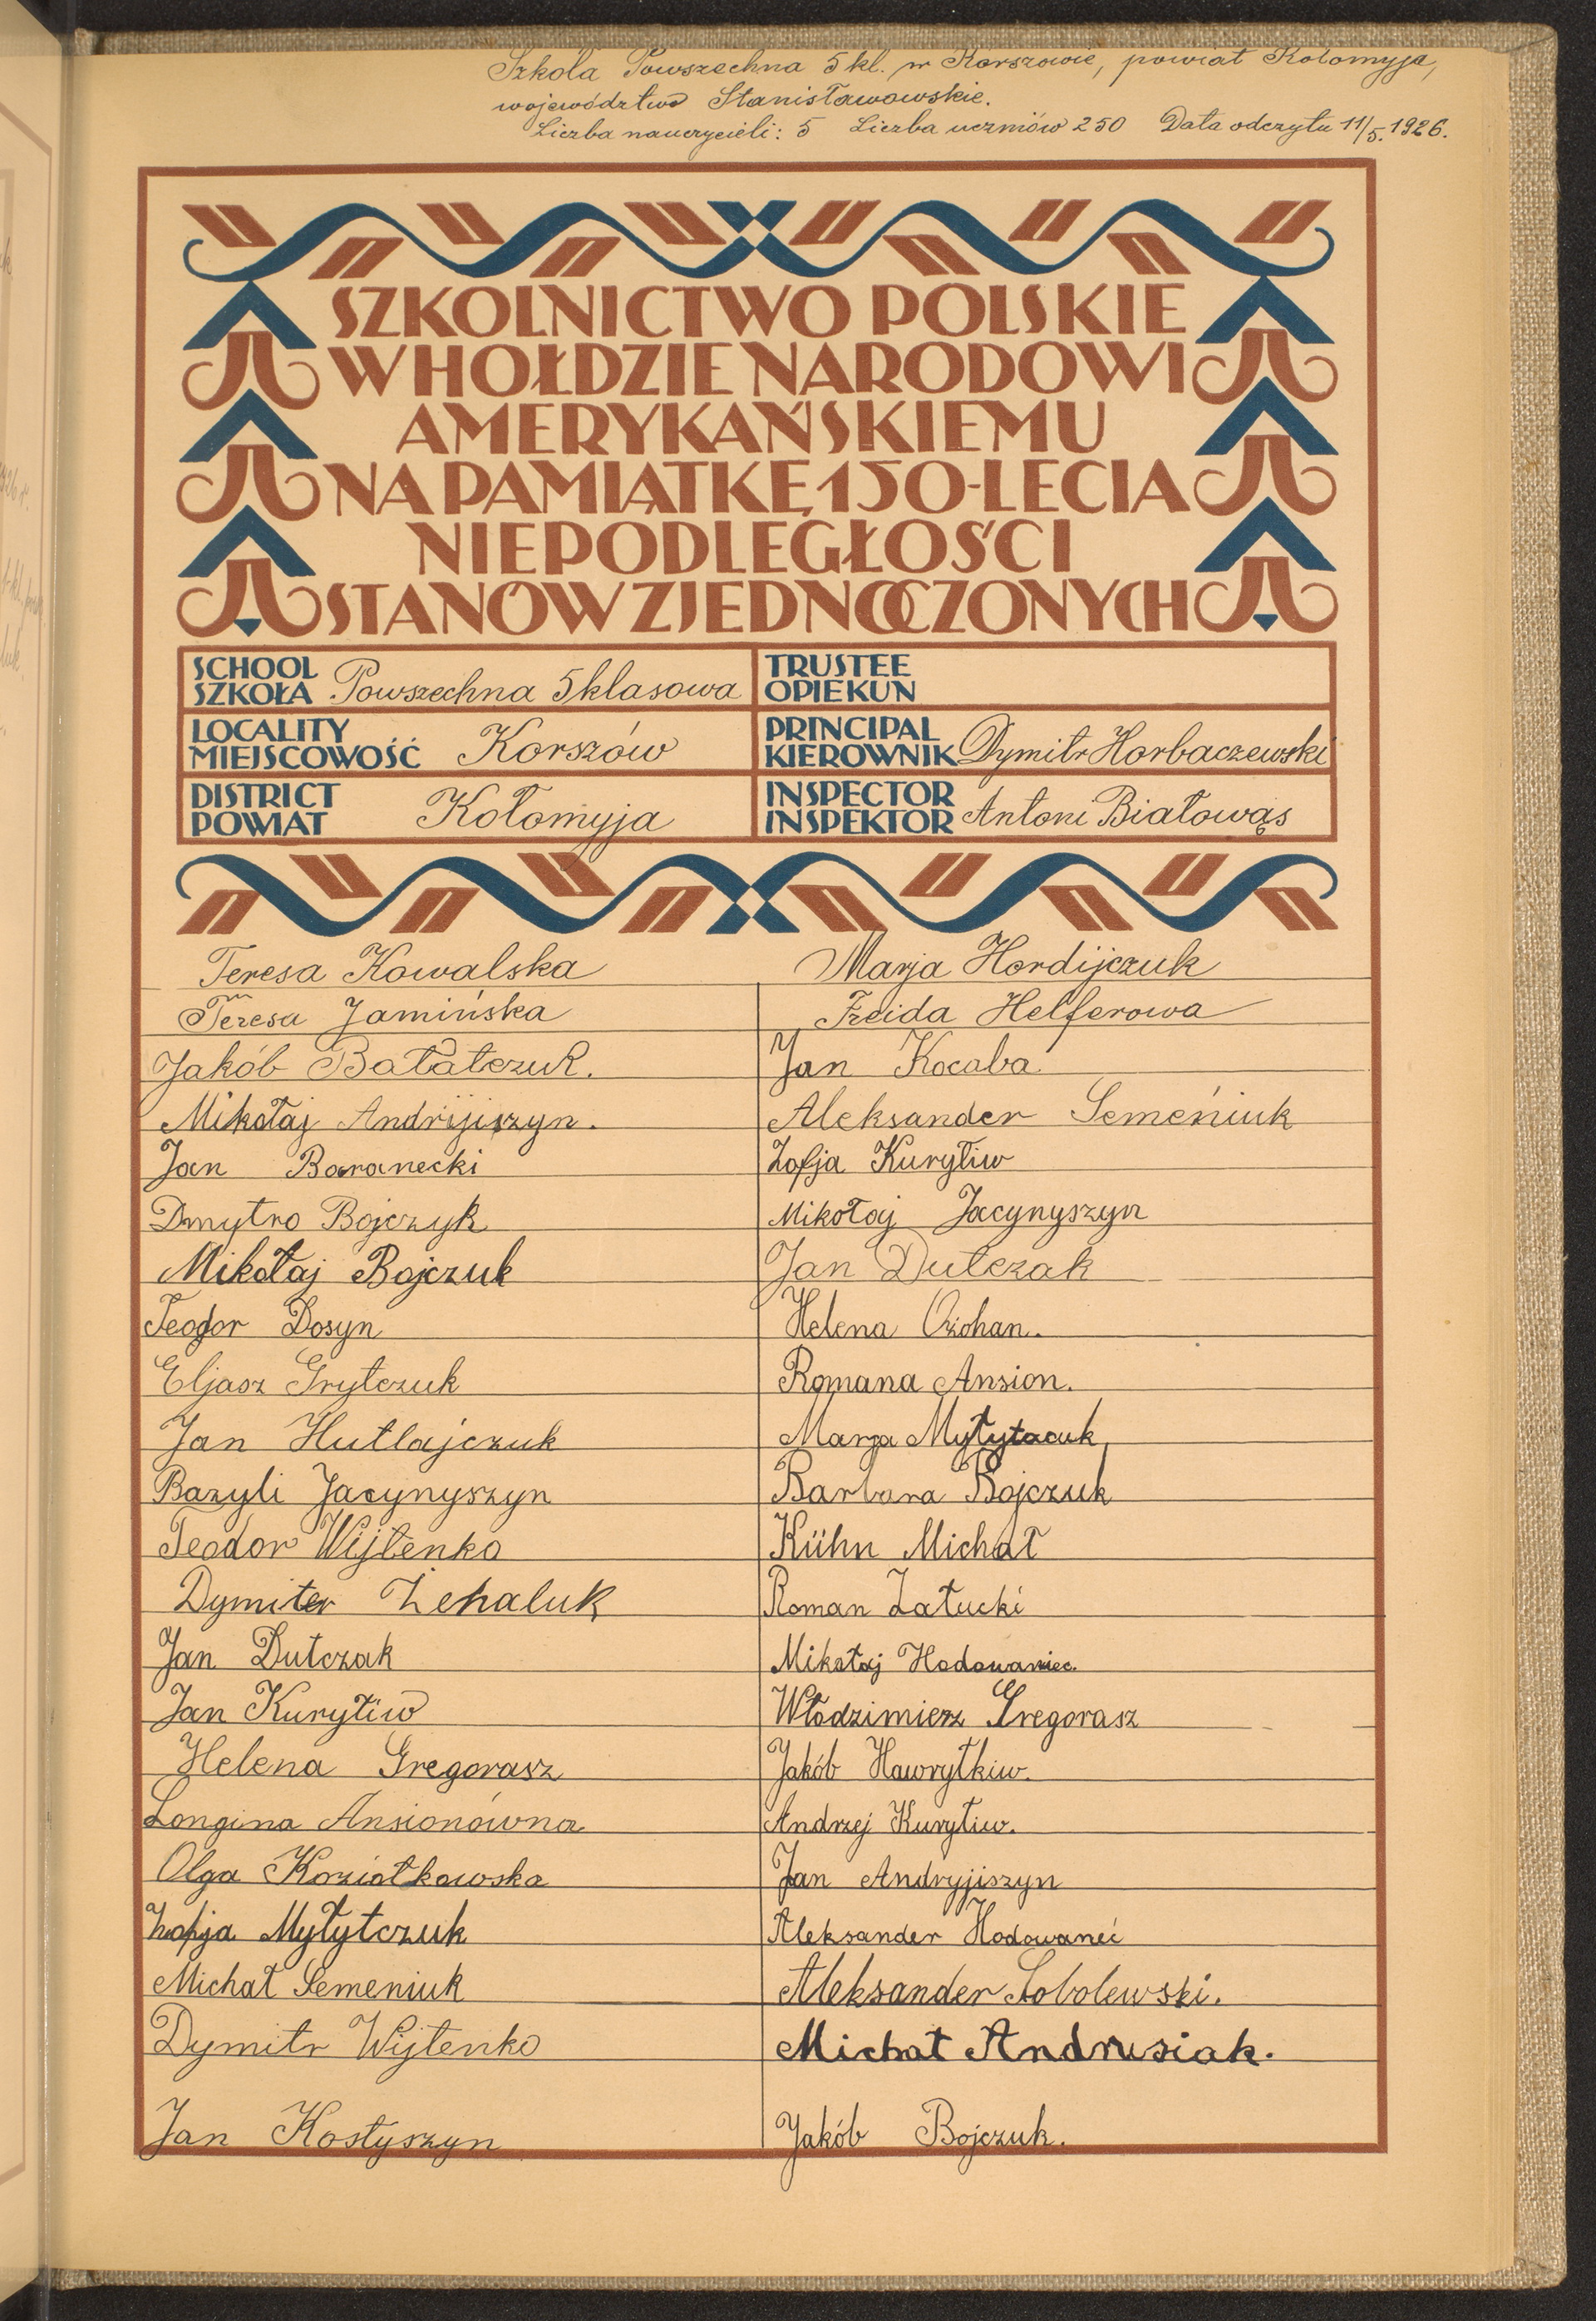 Szkoła Powszechna 5 kl. w Korszowie, powiat Kołomyja,
województwo Stanisławowskie.
Liczba nauczycieli: 5 Liczba uczniów 250 Data odczytu 11/5. 1926.
SZKOLNICTWO POLSKIE
W HOŁDZIE NARODOWI
AMERYKAŃSKIEMU
NA PAMIĄTKĘ 150-LECIA
NIEPODLEGŁOŚCI
STANÓW ZJEDNOCZONYCH
SCHOOL
SZKOŁA Powszechna 5 klasowa
TRUSTEE
OPIEKUN
LOCALITY
MIEJSCOWOŚĆ Korszów
PRINCIPAL
KIEROWNIK Dymitr Horbaczewski
DISTRICT
POWIAT Kołomyja
INSPECTOR
INSPEKTOR Antoni Białowąs
Teresa Kowalska
Teresa Jamińska
Jakób Batałczuk.
Mikołaj Andrijiszyn.
Jan Baranecki
Dmytro Bojczyk
Mikołaj Bojczuk
Teodor Dosyn
Eljasz Grytczuk
Jan Hutlajczuk
Bazyli Jacynyszyn
Teodor Wijtenko
Dymiter Żehaluk
Jan Dutczak
Jan Kuryliw
Helena Gregorasz
Longina Ansionówna
Olga Koziołkowska
Zofja Mytytczuk
Michał Semeniuk
Dymitr Wijtenko
Jan Kostyszyn
Marja Hordijczuk
Freida Helferowa
Jan Kocaba
Aleksander Semeniuk
Zofja Kuryliw
Mikołaj Jacynyszyn
Jan Dutczak
Helena Ożohan.
Romana Ansion.
Marja
Barbara Bojczuk
Kühn Michał
Roman Załucki
Mikołaj Hodowaniec.
Włodzimierz Gregorasz
Jakób Hawryłkiw.
Andrzej Kuryliw.
Jan Andryjiszyn
Aleksander Hodowaneć
Aleksander Sobolewski.
Michał Andrusiak.
Jakób Bojczuk.